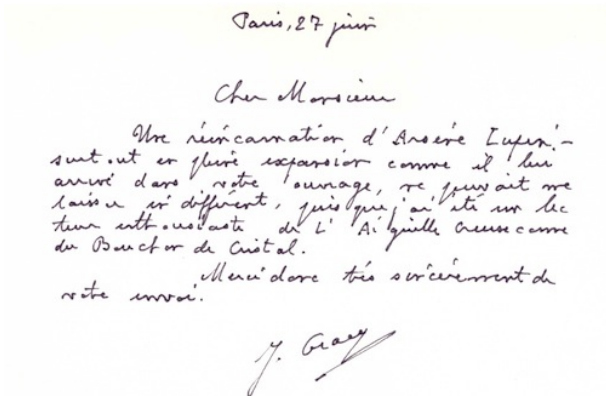 Paris, 27 juin
Cher Monsieur
Une réincarnation d'Arsène Lupin -
surtout en pleine expansion comme il lui
arrive dans votre ouvrage, ne pouvait me
laisser indifférent, puisque j'ai été un lec
teur enthousiaste de L'Aiguille Creuse comme
du Bouchon de Cristal.
Merci donc très sincèrement de
votre envoi.
J. Gracq